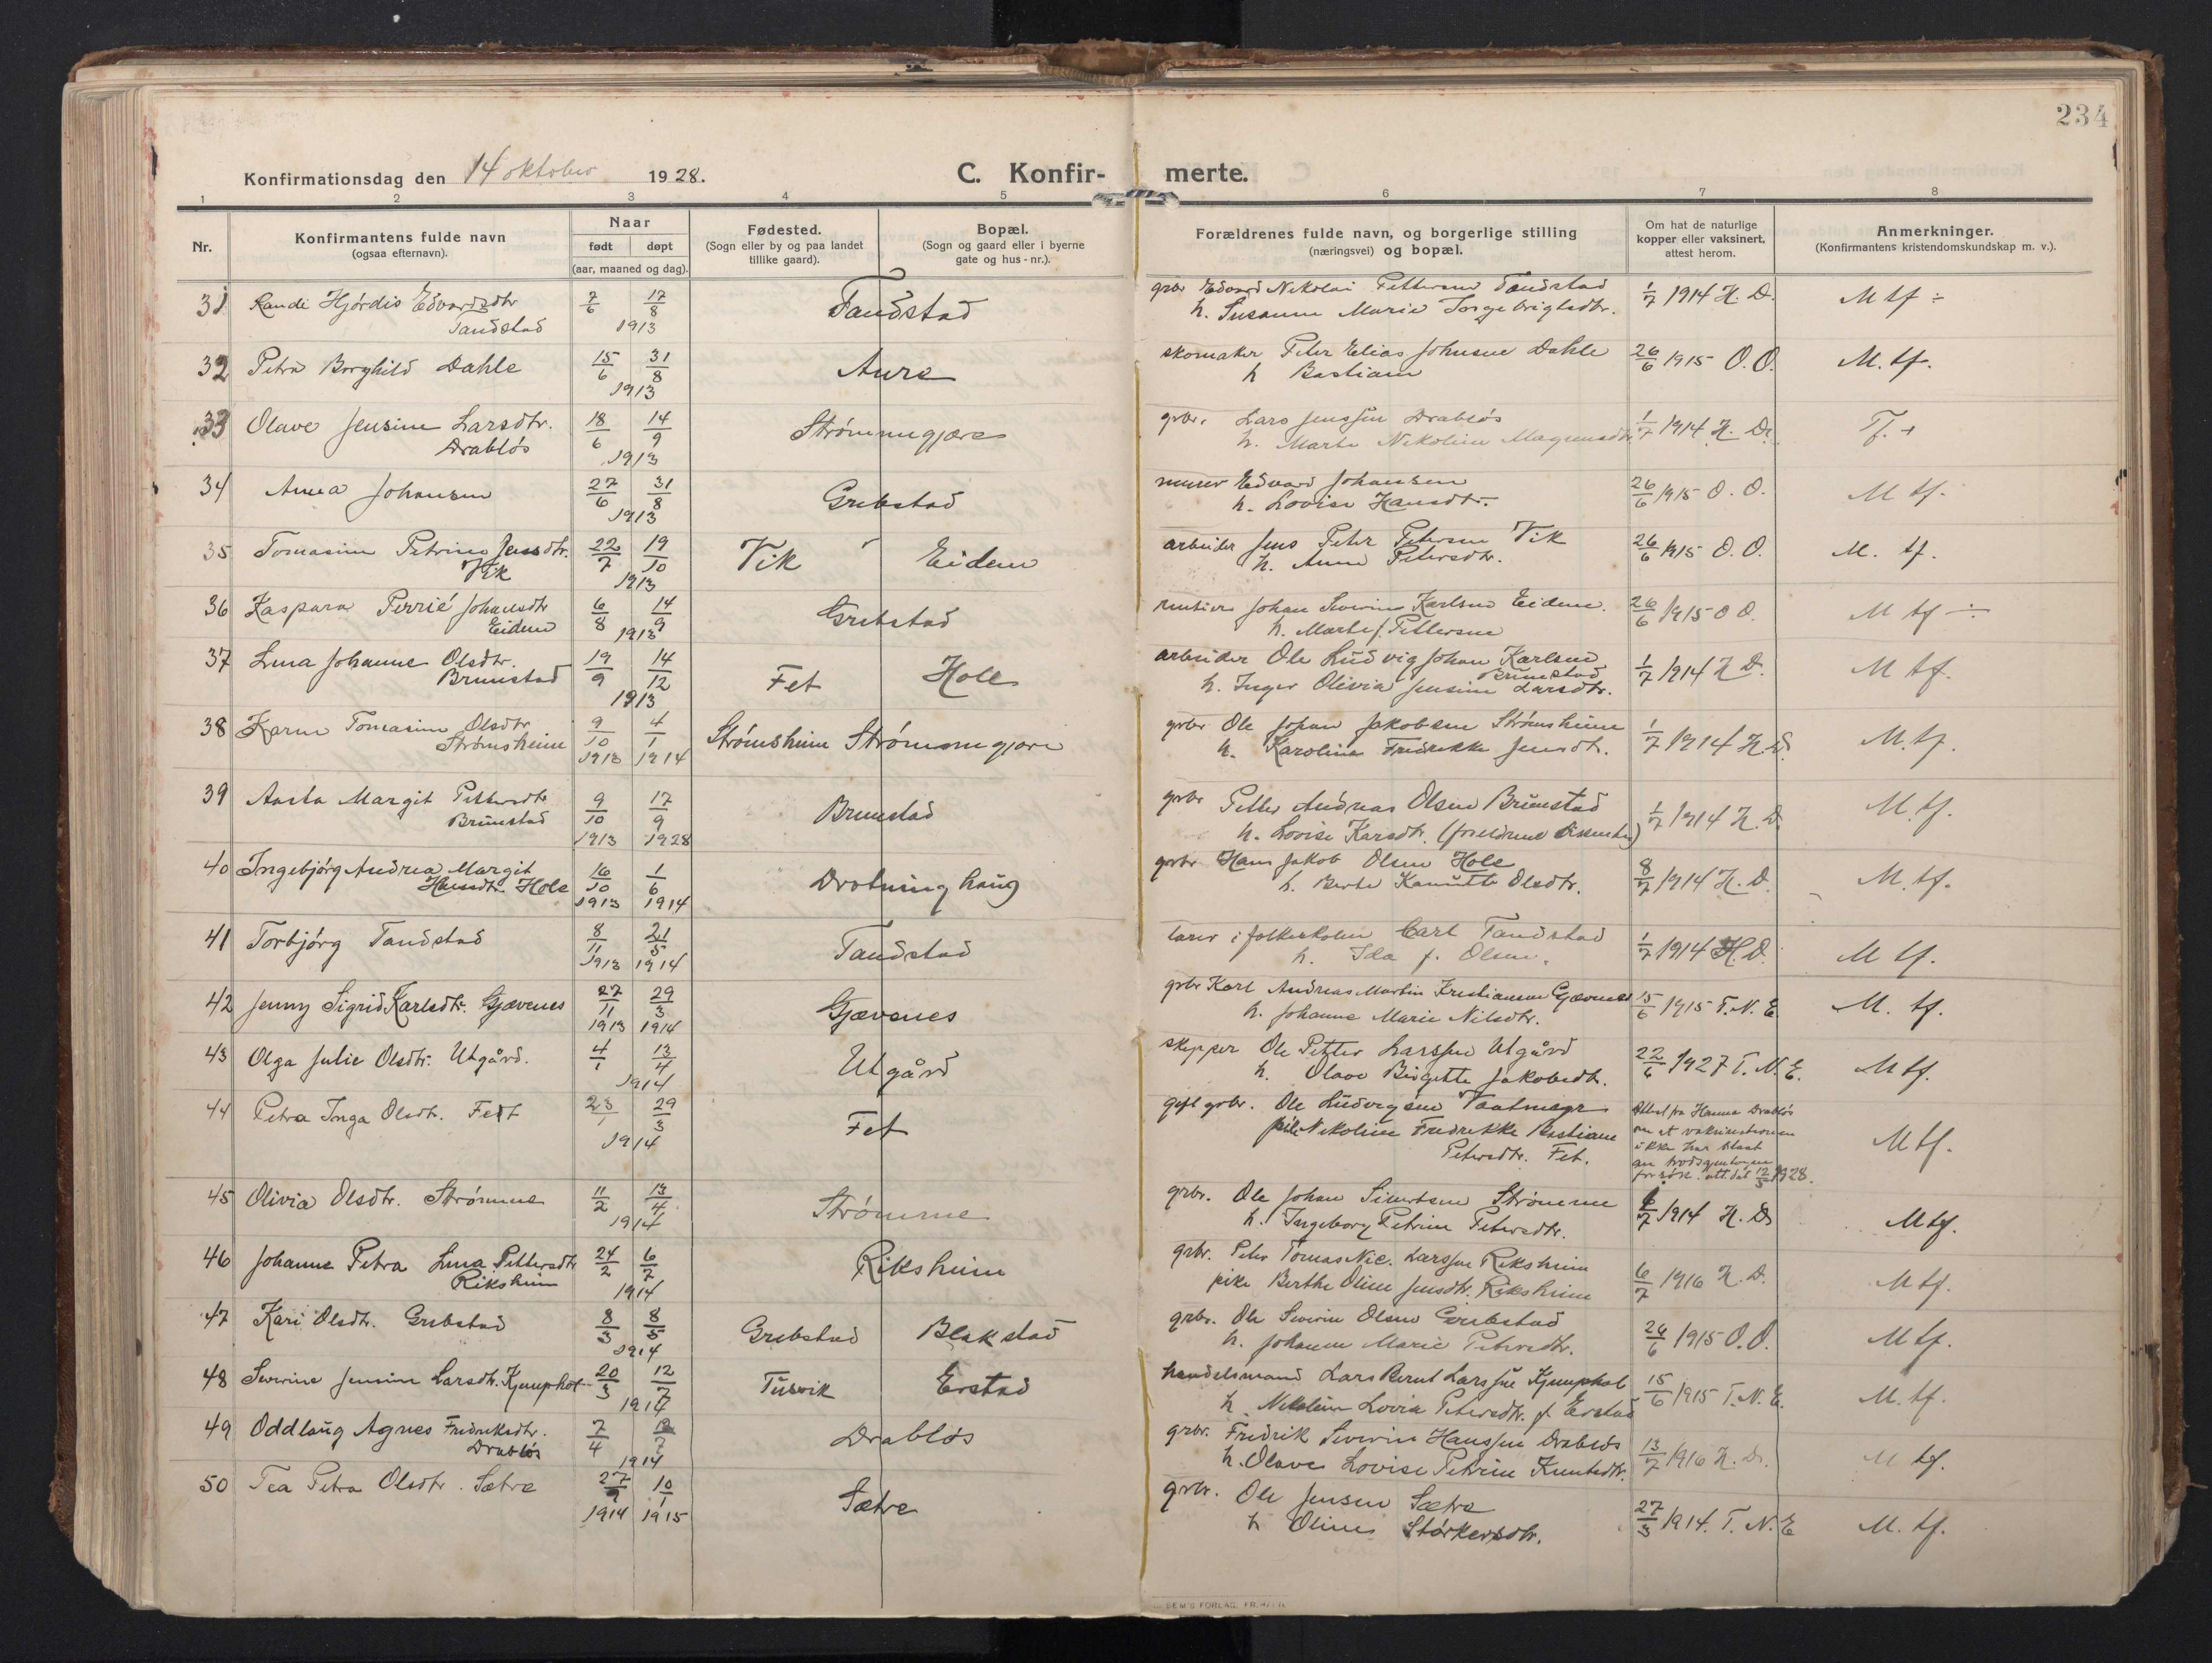 234
Konfirmationsdag den 14 oktober 1928.
C. Konfir- merte.
1 2 3 4 5 6 7 8
Nr.
Konfirmantens fulde navn
(ogsaa efternavn).
Naar
født døpt
(aar, maaned og dag).
Fødested.
(Sogn eller by og paa landet
tillike gaard).
Bopæl.
(Sogn og gaard eller i byerne
gate og hus-nr.).
Forældrenes fulde navn, og borgerlige stilling
(næringsvei) og bopæl.
Om hat de naturlige
kopper eller vaksinert,
attest herom.
Anmerkninger.
(Konfirmantens kristendomskundskap m. v.).
31 Randi Hjørdis Edvardsdtr 7/6 17/8 Tandstad grbr Edvard Nikolai Pettersen Tandstad 1/7 1914 H. D. M tf ÷
Tandstad 1913 h. Susanne Marie Ingebrigtsdtr.
32 Petra Borghild Dahle 15/6 31/8 Aure skomaker Peter Elias Johnsen Dahle 26/6 1915 O. O. M. tf.
1913 h Bastiane
33 Olave Jensine Larsdtr. 18/6 14/9 Strømmegjære grbr. Lars Jenssen Drabløs 1/7 1914 H. D. T. +
Drabløs 1913 h. Marte Nikoline Magnusdtr
34 Anna Johansen 27/6 31/8 Grebstad murer Edvard Johansen 26/6 1915 O. O. M tf.
1913 h. Lovise Hansdtr.
35 Tomasine Petrine Jensdtr. 22/7 19/10 Vik Eidem arbeider Jens Peter Petersen Vik 26/6 1915 O. O. M. tf.
Vik 1913 h. Anne Petersdtr.
36 Kaspara Perrié Johansdtr 6/8 14/9 Grebstad Johan Severin Karlsen Eidem. 26/6 1915 O O. M tf ÷
Eidem 1913 h. Marte f. Pettersen
37 Lina Johanne Olsdtr. 19/9 14/12 Fet Hole arbeider Ole Ludvig Johan Karlsen 1/7 1914 H D. M tf.
Brunstad 1913 Brunstad
h. Inger Olivia Jensine Larsdtr.
38 Karen Tomasine Olsdtr 9/10 4/1 Strømsheim Strømmegjære grbr Ole Johan Jakobsen Strømsheim 1/7 1914 H. D. M. tf.
Strømsheim 1913 1914 h. Karoline Fredrikke Jensdtr.
39 Aasta Margit Pettersdtr 9/10 17/9 Brunstad grbr Petter Andreas Olsen Brunstad 1/7 1914 H. D. M. tf.
Brunstad 1913 1928 h. Lovise Larsdtr. (foreldrene dissentere)
40 Ingebjørg Andrea Margit 16/10 1/6 Drotninghaug grbr Hans Jakob Olsen Hole 8/7 1914 H. D. M. tf.
Hansdtr. Hole 1913 1914 h. Berte Kanutte Olsdtr.
41 Torbjørg Tandstad 8/11 21/5 Tandstad lærer i folkeskolen Carl Tandstad 1/7 1914 H. D. M tf.
1913 1914 h. Ida f. Olsen.
42 Jenny Sigrid Karlsdtr. Gjævenes 27/11 29/3 Gjævenes grbr Karl Andreas Martin Kristiansen Gjævenes 15/6 1915 T. N. E. M. tf.
1913 1914 h. Johanne Marie Nilsdtr.
43 Olga Julie Olsdtr. Utgård. 4/1 13/4 Utgård skipper Ole Petter Larssen Utgård 22/6 1927 T. N. E. M tf.
1914 h. Olave Birgitte Jakobsdtr.
44 Petra Inga Olsdtr. Fet 23/1 29/3 Fet gift grbr. Ole Ludvigsen Vaatmyr Attest fra Hanna Drabløs M tf.
1914 pike Nikoline Fredrikke Bastiane om at vaksinationen
Petersdtr. Fet. ikke har slaat
an
12/5 1928.
45 Olivia Olsdtr. Strømme 11/2 13/4 Strømme grbr. Ole Johan Sivertsen Strømme 6/7 1914 H. D. M tf.
1914 h. Ingeborg Petrine Petersdtr.
46 Johanne Petra Lina Pettersdtr 24/2 6/7 Riksheim grbr. Peter Tomas Nic. Larssen Riksheim 6/7 1916 H. D. M tf.
Riksheim 1914 pike Berthe Oline Jensdtr. Riksheim
47 Kari Olsdtr. Grebstad 8/3 8/5 Grebstad Blakstad grbr. Ole Severin Olsen Grebstad 26/6 1915 O. O. M tf.
1914 h. Johanne Marie Petersdtr.
48 Severine Jensine Larsdtr. Kjemphol 20/3 12/7 Tusvik Erstad handelsmand Lars Bernt Larssen Kjemphol 15/6 1915 T. N. E. M. tf.
1914 h. Nikoline Lovise Petersdtr. f. Erstad
49 Oddlaug Agnes Fredriksdtr. 7/4 12/7 Drabløs grbr. Fredrik Severin Hanssen Drabløs 13/7 1916 H. D. M tf.
Drabløs 1914 h. Olave Lovise Petrine Knutsdtr.
50 Tea Petra Olsdtr. Sætre 27/9 10/1 Sætre grbr. Ole Jensen Sætre 27/3 1914. T. N. E M. tf.
1914 1915 h Oline Størkersdtr.
SEM'S FORLAG, FR.HALD.